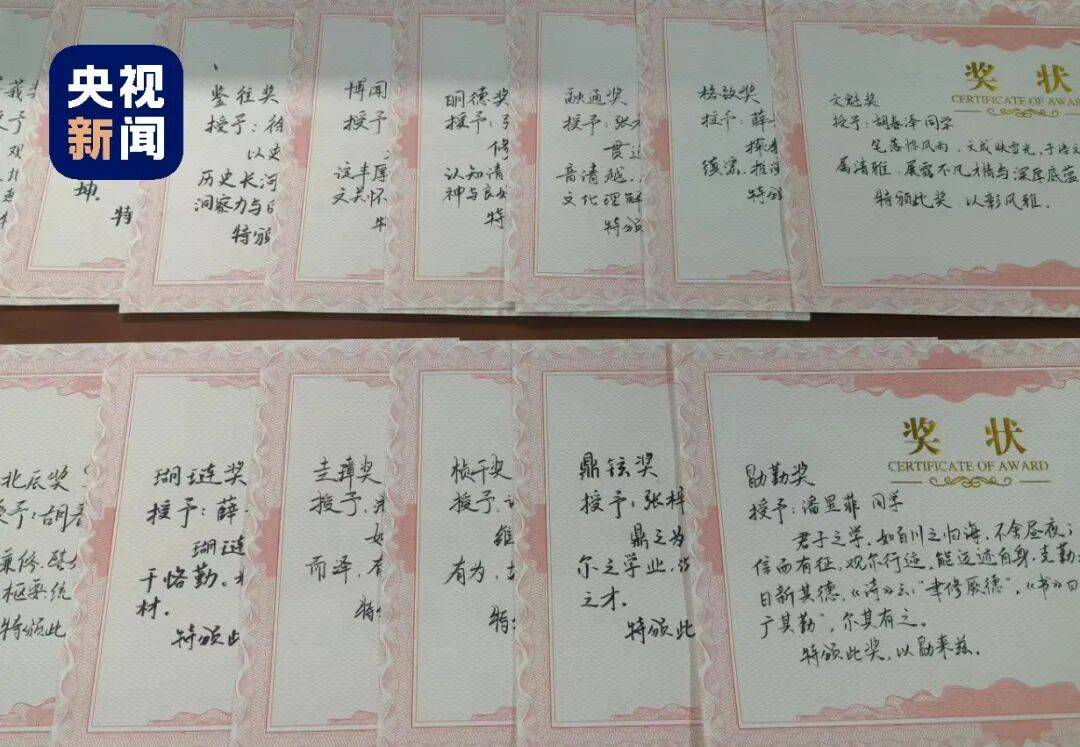 央视
新闻
莪
授予
观
坤.
特
鉴往奖
授予:徐
以史
历史长河
洞察力与
特颁
博闻
授予
谊丰厚
文关怀
明德奖
授予:
修
认知清
神与良
特
融通奖
授予:张
贯通
音清越
文化理解
特颁
格致奖
授予:薛
探
缜密,推
特颁
奖 状
CERTIFICATE OF AWARD
文魁奖
授予:胡春泽 同学
笔落惊风雨,文成映雪光,于语文
属清雅,屡露不凡才情与深厚底蕴
特颁此奖,以彰风雅.
北辰奖
授予:胡春
兼修,
枢要统
特颁此
瑚琏奖
授予:薛
瑚琏
干恪勤.
材.
特颁此
圭璋奖
授予:
如
而泽,有
特
桢干奖
授予:
维
有为,
特
鼎铉奖
授予:张梓
鼎之为
尔之学业,
之才.
特颁此
勖勤奖
授予:潘昱菲 同学
君子之学,如百川之归海,不舍昼夜;
信而有征,观尔行迹,能迈迹自身,克勤
日新其德,《诗》云:"聿修厥德",《书》曰
广其勤",尔其有之.
特颁此奖,以勖来兹.
奖 状
CERTIFICATE OF AWARD